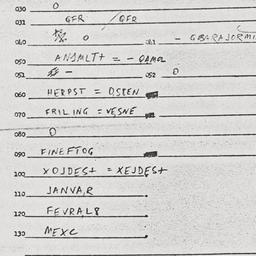 030 0
031 GFR / GFR
040 0 041 -
050 ANSMLT+ = - 
051 - 052 0
060 HERPST = OSPEN
070 FRILING = VESNE
080 0
090 FINEFTOG
100 XOJDEST = XEJDEST
110 JANVAR
120 FEVRAL8
130 MEXC